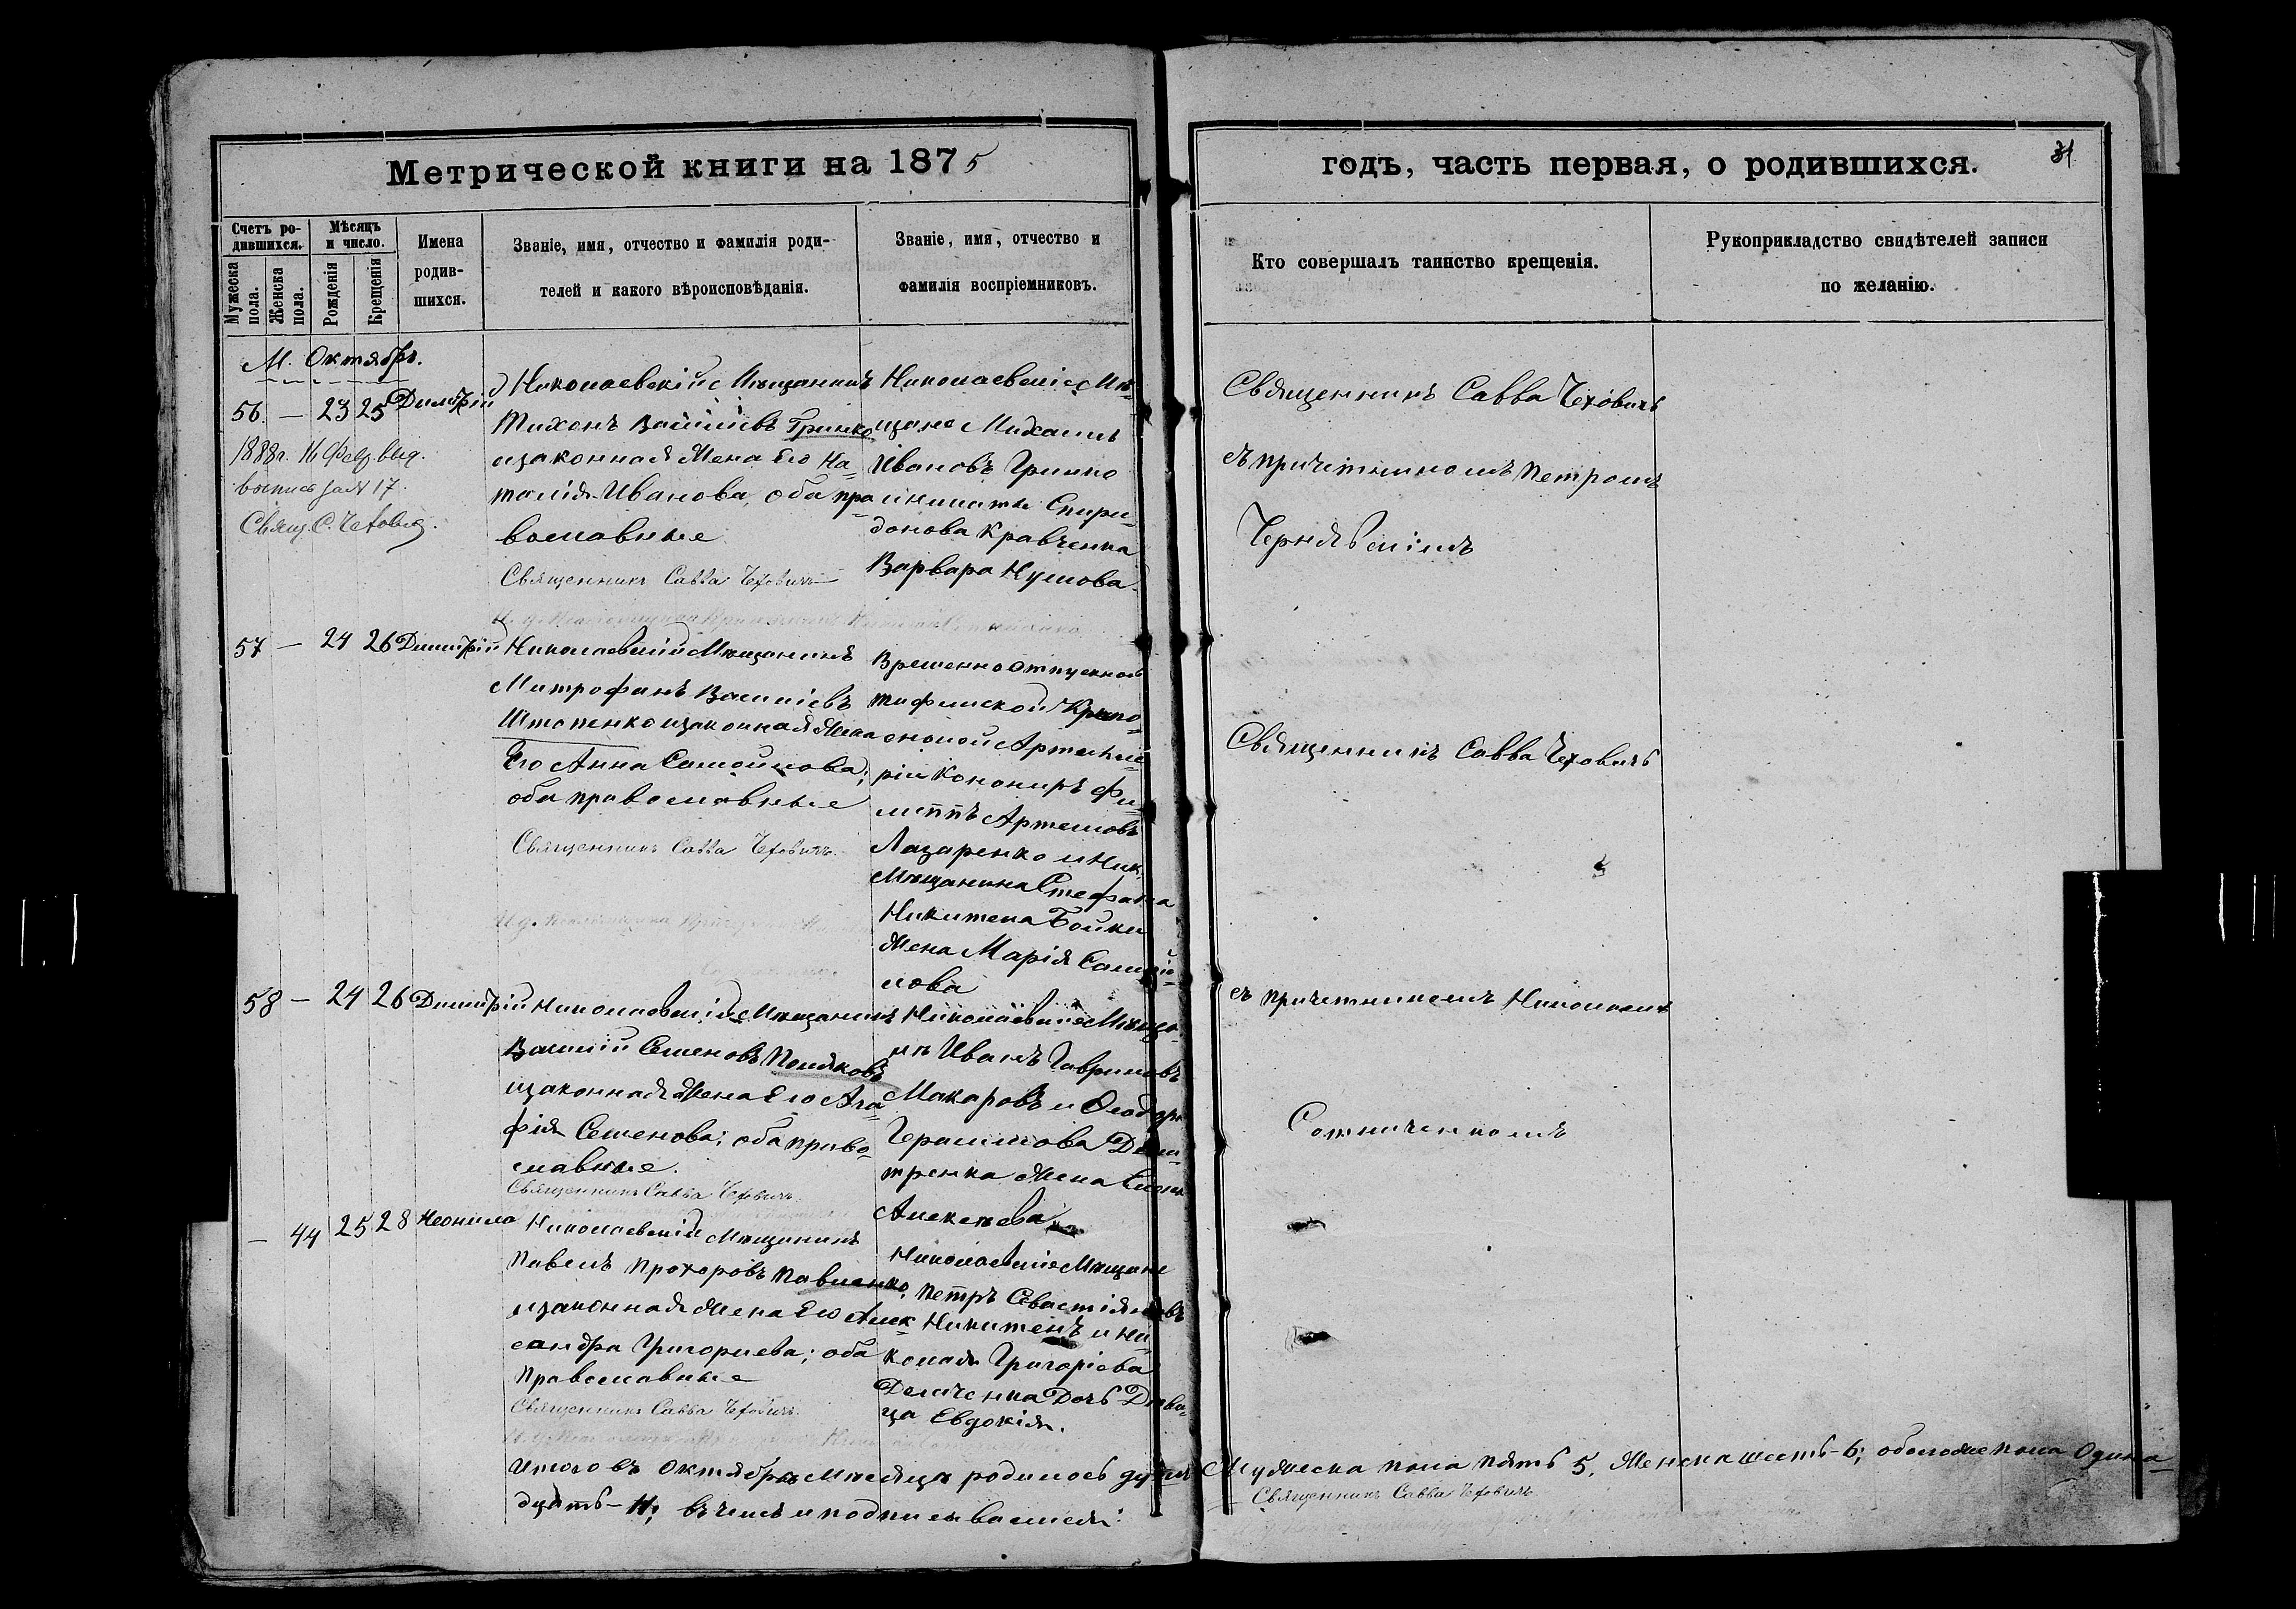 Метрической книги на 1875
годъ, часть первая, о родившихся.
31
Счетъ ро-
дившихся.
Мужеска
пола.
Женска
пола.
Мѣсяцъ
и число.
Рожденія
Крещенія
Имена
родив-
шихся.
Званіе, имя, отчество и фамилія роди-
телей и какого вѣроисповѣданія.
Званіе, имя, отчество и
фамилія воспріемниковъ.
Кто совершалъ таинство крещенія.
Рукоприкладство свидѣтелей записи
по желанію.
М. Октябрь.
56 — 23 25 Димитрій
1888 г. 16 Февр. выд.
выпись за № 17.
Свящ. С. Чехович.
Николаевскій Мѣщанинъ
Тихонъ Василіевъ Гринко
изаконная Жена Его На-
талія Иванова, оба пра-
вославные
Священникъ Савва Чеховичъ
Николаевскіе Мѣ-
щане Михаилъ
Ивановъ Гринко
и Спири-
донова Кравченка
Варвара
Священникъ Савва Чеховичъ
съ причетникомъ Петромъ
Чернявскимъ
57 — 24 26 Димитрій
Николаевскій Мѣщанинъ
Митрофанъ Василіевъ
Штопенко изаконная Жена
Его Анна Самойлова;
оба православные
Священникъ Савва Чеховичъ.
Временноотпускной
Крѣпо-
стной Артилле-
ріи Канониръ Фи-
липпъ Артемовъ
Лазаренко и Ник.
Мѣщанина Стефана
Никитена Бойки
Жена Марія Самой-
лова
Священникъ Савва Чеховичъ
съ причетникомъ Николаемъ
Сотниченкомъ
58 — 24 26 Димитрій
Николаевскій Мѣщанинъ
Василій Семеновъ Поляковъ
изаконная Жена Его Ага-
фія Семенова; оба право-
славные.
Священникъ Савва Чеховичъ.
Николаевскіе Мѣща-
нъ Иванъ Гавриловъ
Макаровъ и Ѳеодора
Герасимова Дми-
тренка Жена Елена
Алексѣева
— 44 25 28 Неонила
Николаевскій Мѣщанинъ
Павелъ Прохоровъ Павленко
изаконная Жена Его Алек-
сандра Григориева; оба
Православные
Священникъ Савва Чеховичъ.
Николаевскіе Мѣщане
Петръ Севастіяновъ
Никитенъ и Ни-
колая Григоріева
Дочь Дѣви-
ца Евдокія.
Итого въ Октябрѣ Мѣсяцѣ родилось Мужеска пола пять 5, Женска шесть - 6; обоего пола Одина-
дцать - 11; въ чемъ и подписываемся:
Священникъ Савва Чеховичъ